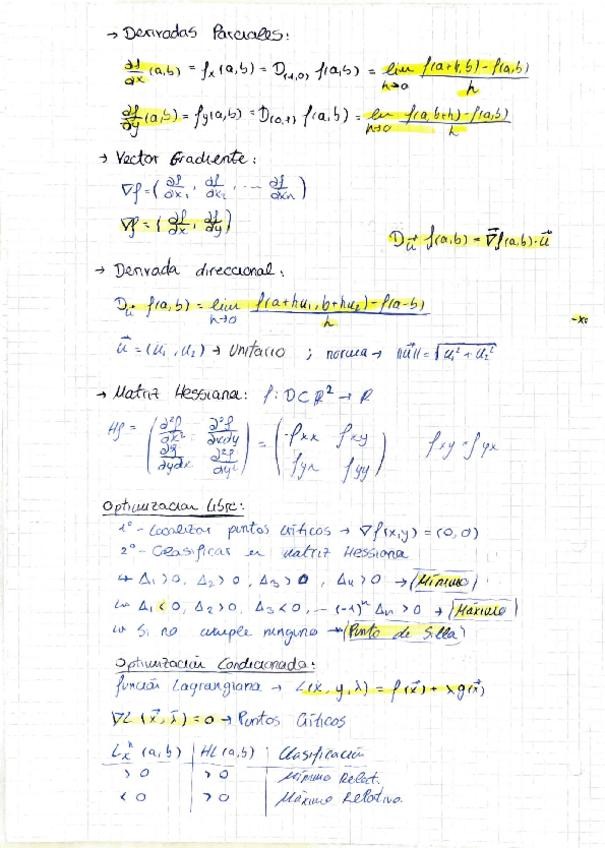 → Derivadas Parciales:
∂f/∂x (a,b) = fx (a,b) = D(1,0) f(a,b) = lim h→0 f(a+h,b) - f(a,b) / h
∂f/∂y (a,b) = fy(a,b) = D(0,1) f(a,b) = lim h→0 f(a,b+h) - f(a,b) / h
→ Vector Gradiente:
∇f = (∂f/∂x1, ∂f/∂x2, ... ∂f/∂xn)
∇f = (∂f/∂x, ∂f/∂y)
Du⃗ f(a,b) = ∇⃗f(a,b)·u⃗
→ Derivada direccional:
Du⃗ f(a,b) = lim h→0 f(a+hu1, b+hu2) - f(a-b) / h
u⃗ = (u1, u2) → Unitario ; norma → ||u⃗|| = √u1² + u2²
→ Matriz Hessiana: f: D⊂R² → R
Hf = (∂²f/∂x² ∂²f/∂x∂y
∂²f/∂y∂x ∂²f/∂y²) = (fxx fxy
fyx fyy) fxy = fyx
Optimización Libre:
1º - Localizar puntos críticos → ∇f(x,y) = (0,0)
2º - Clasificar en Matriz Hessiana
↳ Δ1 > 0, Δ2 > 0, Δ3 > 0, Δn > 0 → (Mínimo)
↳ Δ1 < 0, Δ2 > 0, Δ3 < 0, - (-1)ⁿ Δn > 0 → (Máximo)
↳ Si no cumple ninguno → (Punto de Silla)
Optimización Condicionada:
función Lagrangiana → L(x, y, λ) = f(x⃗) + λg(x⃗)
∇L (x⃗, λ⃗) = 0 → Puntos Críticos
(a,b) | HL(a,b) | Clasificación
> 0 | > 0 | Mínimo Relat.
< 0 | > 0 | Máximo Relativo.